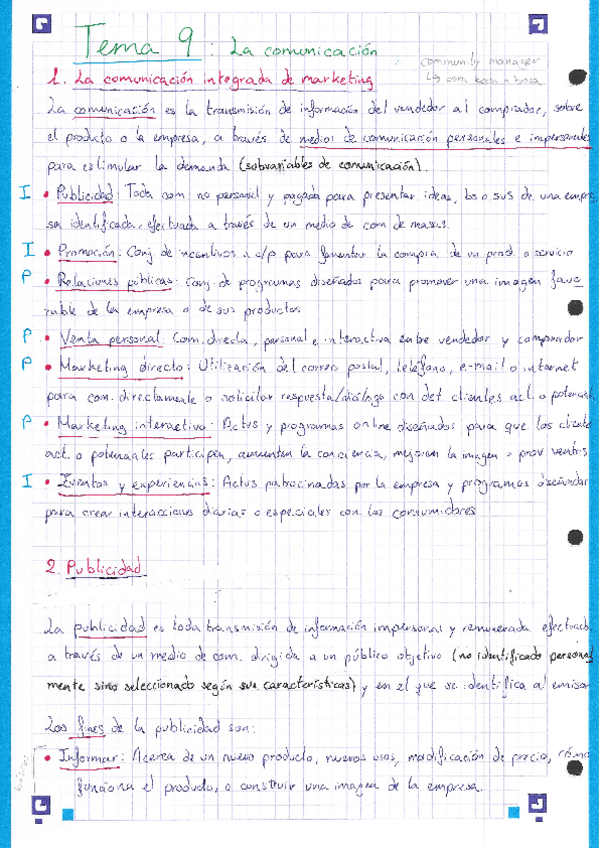 Tema 9: La comunicación
community manager
1. La comunicación integrada de marketing
La comunicación es la transmisión de información del vendedor al comprador, sobre
el producto o la empresa, a través de medios de comunicación personales e impersonales
para estimular la demanda (subvariables de comunicación).
I • Publicidad: Toda com. no personal y pagada para presentar ideas, bs o sus de una empre
sa identificada, efectuada a través de un medio de com de masas.
I • Promoción: Conj de incentivos a c/p para fomentar la compra de un prod. o servicio
P • Relaciones públicas: Conj. de programas diseñados para promover una imagen favo
rable de la empresa o de sus productos
P • Venta personal: Com. directa, personal e interactiva entre vendedor y comprador
P • Marketing directo: Utilización del correo postal, teléfono, e-mail o internet
para com. directamente o solicitar respuesta/diálogo con det clientes act. o potencial
P • Marketing interactivo: Actvs y programas online diseñados para que los cliente
act. o potenciales participen, aumenten la conciencia, mejoren la imagen o prov ventas
I • Eventos y experiencias: Actvs patrocinadas por la empresa y programas diseñados
para crear interacciones diarias o especiales con los consumidores
2. Publicidad
La publicidad es toda transmisión de información impersonal y remunerada efectuada
a través de un medio de com. dirigida a un público objetivo (no identificado personal
mente sino seleccionado según sus características) y en el que se identifica al emisor
Los fines de la publicidad son:
• Informar: Acerca de un nuevo producto, nuevos usos, modificación de precio, cómo
funciona el producto, o construir una imagen de la empresa.